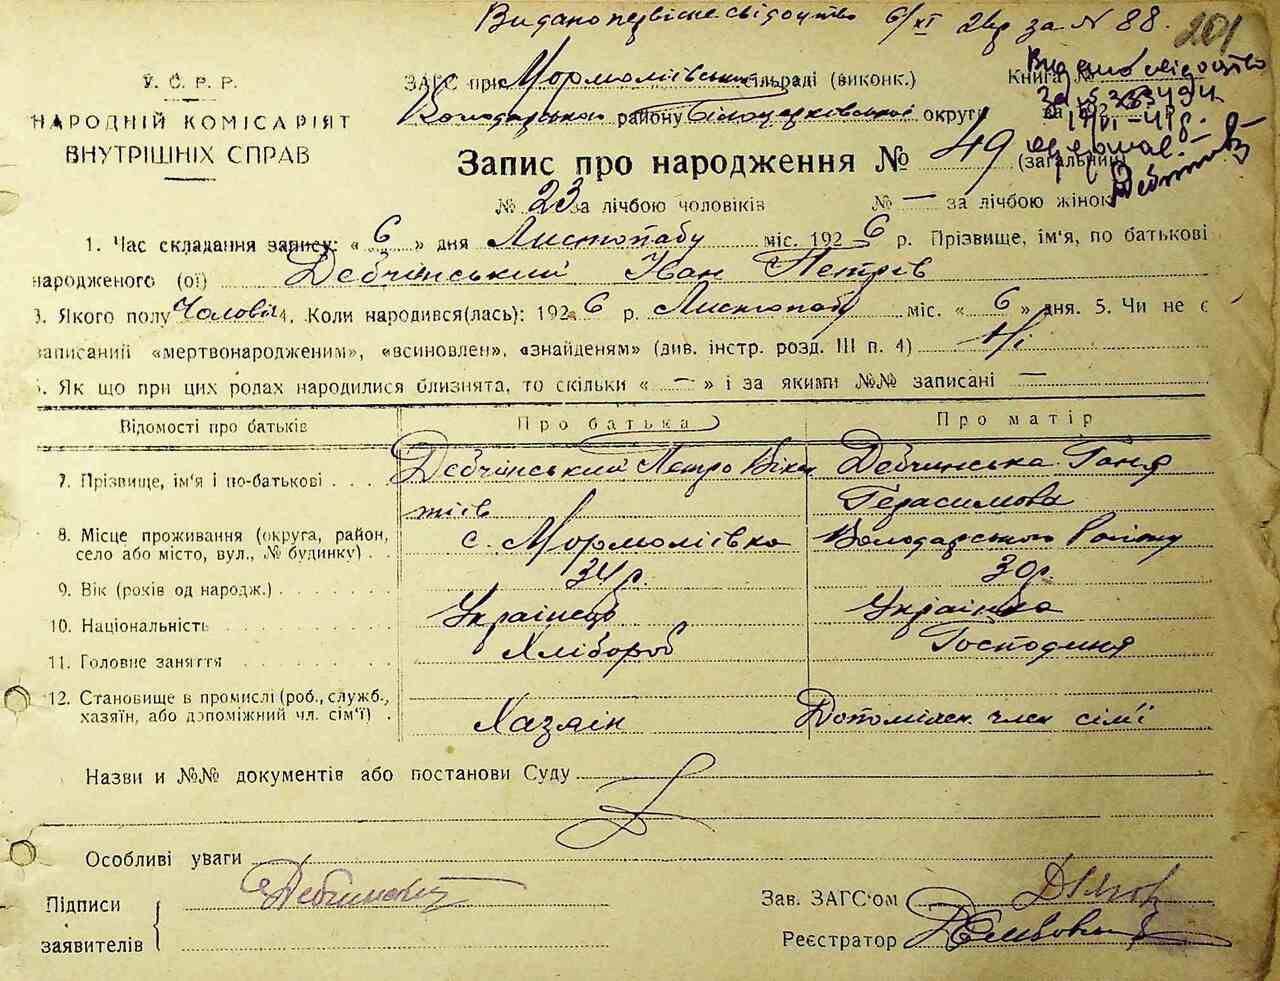 Видано первісне свідоцтво 6/XI 26р за N 88.
201
У.С.Р.Р.
НАРОДНІЙ КОМІСАРІЯТ
ВНУТРІШНІХ СПРАВ
ЗАГС при Мормоліївській сільраді (виконк.) Книга №
Володарського району Білоцерківської округи за
Видано свідоцтво
Запис про народження № 49 (загальний)
№ 23 за лічбою чоловіків № — за лічбою жінок
1. Час складання запису: « 6 » дня Листопаду міс. 1926 р. Прізвище, ім'я, по батькові
народженого (ої) Дебчинський Іван Петрів
3. Якого полу Чолові 4. Коли народився(лась): 1926 р. Листопаду міс. « 6 » дня. 5. Чи не є
записаний «мертвонародженим», «всиновлен», «знайденям» (див. інстр. розд. III п. 4) Ні
6. Як що при цих родах народилися близнята, то скільки « — » і за якими №№ записані —
Відомості про батьків Про батька Про матір
7. Прізвище, ім'я і по-батькові . . . Дебчинський Петро Вікен Дебчинська Ганя
тіїв Герасимова
8. Місце проживання (округа, район,
село або місто, вул., № будинку) . . с. Мормоліївка Володарського Району
9. Вік (років од народж.) 34 р. 30 р.
10. Національність Українець Українка
11. Головне заняття Хлібороб Господиня
12. Становище в промислі (роб., службр.,
хазяїн, або допоміжний чл. сім'ї) . Хазяїн Допоміжн. член сім'ї
Назви и №№ документів або постанови Суду
Особливі уваги
Підписи
заявителів
Зав. ЗАГС'ом
Реєстратор